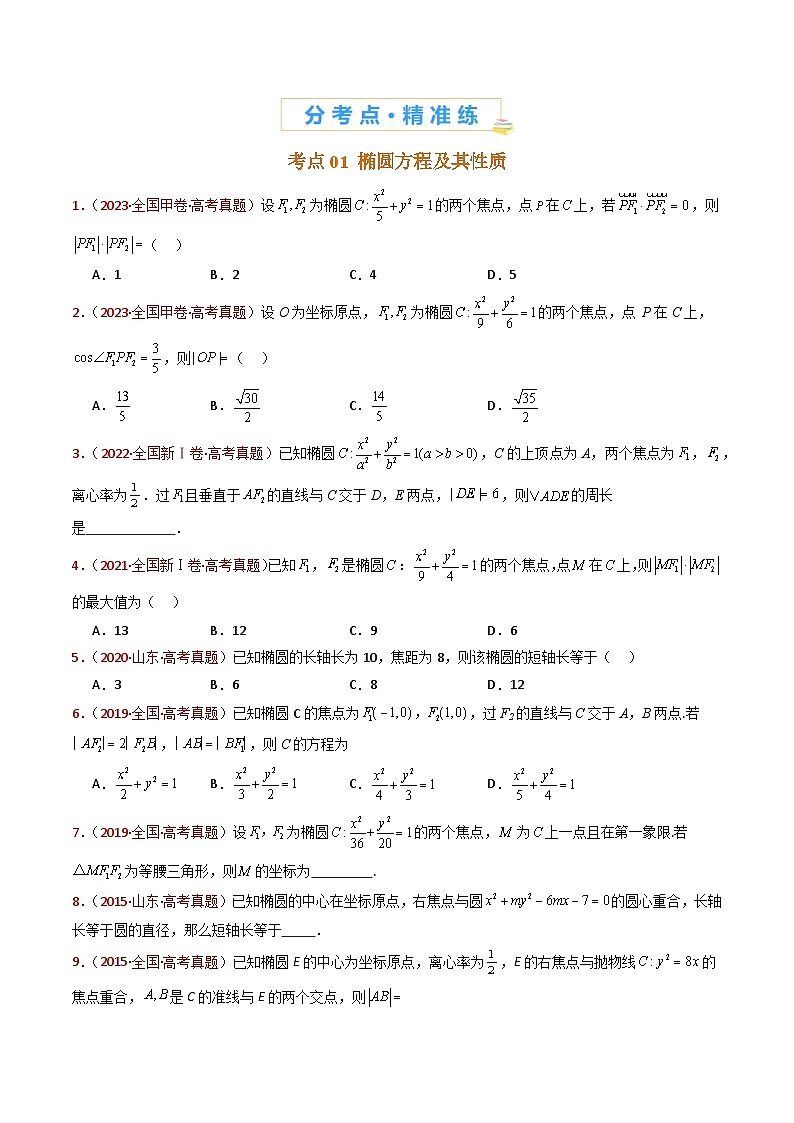 分考点·精准练
考点01 椭圆方程及其性质
1.(2023·全国甲卷·高考真题)设F₁,F₂为椭圆C:x²/5+y²=1的两个焦点,点P在C上,若PF₁·PF₂=0,则
|PF₁|·|PF₂|=( )
A.1 B.2 C.4 D.5
2.(2023·全国甲卷·高考真题)设O为坐标原点,F₁,F₂为椭圆C:x²/9+y²/6=1的两个焦点,点 P在C上,
cos∠F₁PF₂=3/5,则|OP|=( )
A.13/5 B.√30/2 C.14/5 D.√35/2
3.(2022·全国新Ⅰ卷·高考真题)已知椭圆C:x²/a²+y²/b²=1(a>b>0),C的上顶点为A,两个焦点为F₁,F₂,
离心率为1/2.过F₁且垂直于AF₂的直线与C交于D,E两点,|DE|=6,则∨ADE的周长
是____________.
4.(2021·全国新Ⅰ卷·高考真题)已知F₁,F₂是椭圆C:x²/9+y²/4=1的两个焦点,点M在C上,则|MF₁|·|MF₂|
的最大值为( )
A.13 B.12 C.9 D.6
5.(2020·山东·高考真题)已知椭圆的长轴长为10,焦距为8,则该椭圆的短轴长等于( )
A.3 B.6 C.8 D.12
6.(2019·全国·高考真题)已知椭圆C的焦点为F₁(−1,0),F₂(1,0),过F₂的直线与C交于A,B两点.若
|AF₂|=2|F₂B|,|AB|=|BF₁|,则C的方程为
A.x²/2+y²=1 B.x²/3+y²/2=1 C.x²/4+y²/3=1 D.x²/5+y²/4=1
7.(2019·全国·高考真题)设F₁,F₂为椭圆C:x²/36+y²/20=1的两个焦点,M为C上一点且在第一象限.若
△MF₁F₂为等腰三角形,则M的坐标为_________.
8.(2015·山东·高考真题)已知椭圆的中心在坐标原点,右焦点与圆x²+my²−6mx−7=0的圆心重合,长轴
长等于圆的直径,那么短轴长等于_____.
9.(2015·全国·高考真题)已知椭圆E的中心为坐标原点,离心率为1/2,E的右焦点与抛物线C:y²=8x的
焦点重合,A,B是C的准线与E的两个交点,则|AB|=